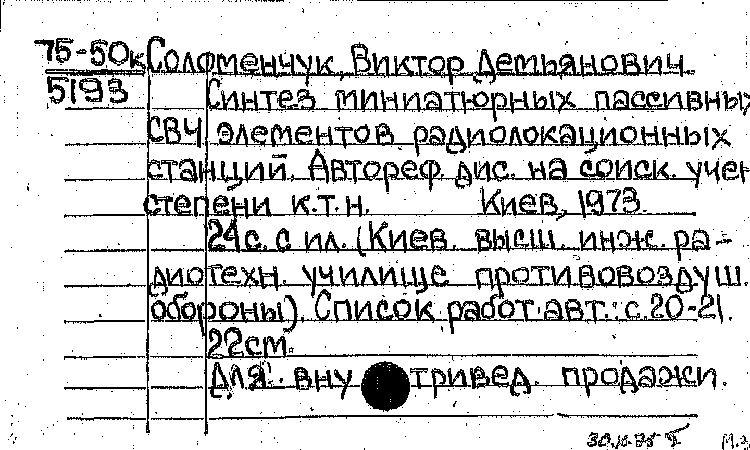 75-50к Соломенчук, Виктор Демьянович.
5193 Синтез миниатюрных пассивны
СВЧ элементов радиолокационных
станций. Автореф. дис. на соиск. учен
степени к.т.н. Киев, 1973.
24с. с ил. (Киев. высш. инж. ра-
диотехн. училище противовоздуш.
обороны). Список работ авт.: с.20-21.
22см.
Для вну тривед. продажи.